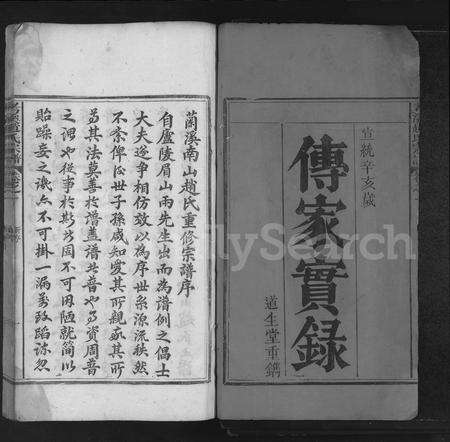 宣統辛亥歲
傳家實錄
道生堂重鐫
蘭溪南山趙氏重修宗譜序
自廬陵眉山兩先生出而為譜例之倡士
大夫迩争相仿效以為序世系源流秩然
不紊俾后世子孫咸知愛其所親敬其所
尊其法莫善於譜蓋譜者普也為資周普
之謂也從事於斯者固不可因陋就簡以
貽躁妄之诮亦不可掛一漏萬致蹈疎忽
FamilySearch